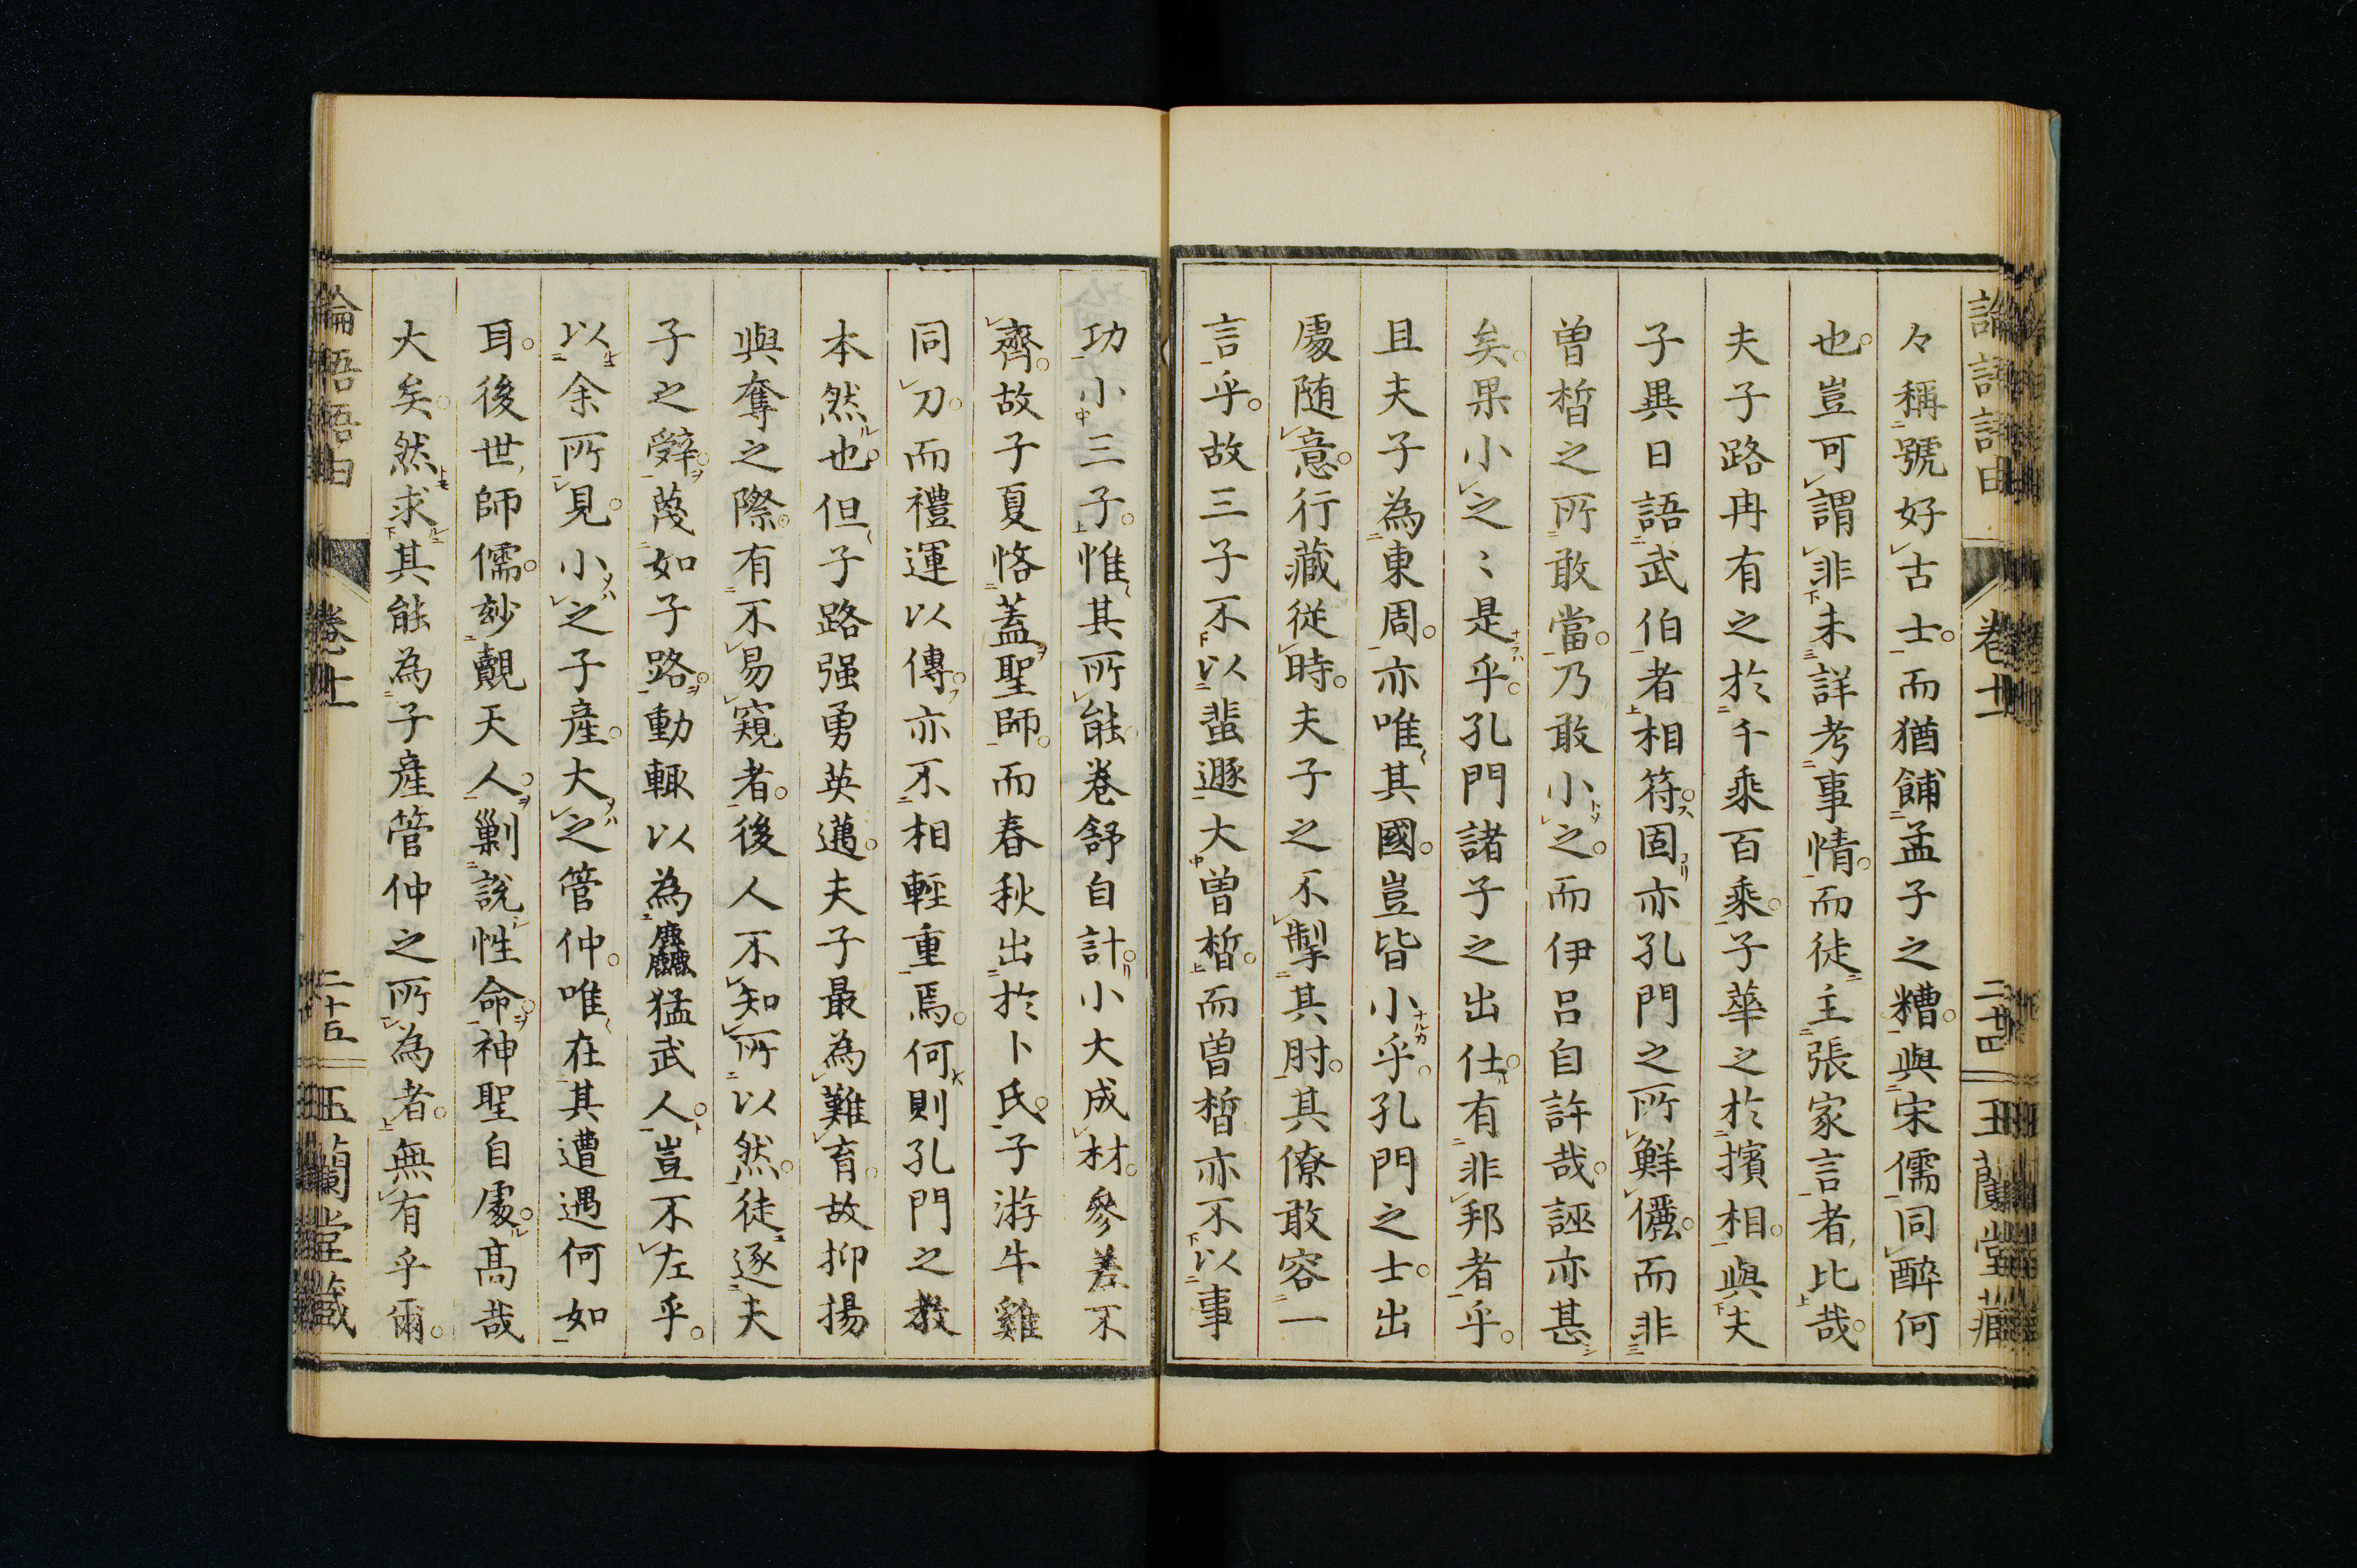 論語語由 卷十一 二十四 玉蘭堂藏
々稱號好古士而猶餔孟子之糟與宋儒同醉何
也豈可謂非未詳考事情而徒主張家言者比哉
夫子路冉有之於千乘百乘子華之於擯相與夫
子異日語武伯者相符固亦孔門之所鮮儷而非
曾晳之所敢當乃敢小之而伊呂自許哉誣亦甚
矣果小之〻是乎孔門諸子之出仕有非邦者乎
且夫子為東周亦唯其國豈皆小乎孔門之士出
處随意行藏從時夫子之不掣其肘其僚敢容一
言乎故三子不以蜚遯大曾晳而曾晳亦不以事
功小三子惟其所能卷舒自計小大成材參差不
齊故子夏恪蓋聖師而春秋出於卜氏子游牛雞
同刀而禮運以傳亦不相輕重焉何則孔門之教
本然也但子路强勇英邁夫子最為難育故抑揚
與奪之際有不易窺者後人不知所以然徒逐夫
子之辭蔑如子路動輒以為麤猛武人豈不左乎
以余所見小之子產大之管仲唯在其遭遇何如
耳後世師儒玅觀天人剿說性命神聖自處高哉
大矣然求其能為子產管仲之所為者無有乎爾
論語語由 卷十一 二十五 玉蘭堂藏